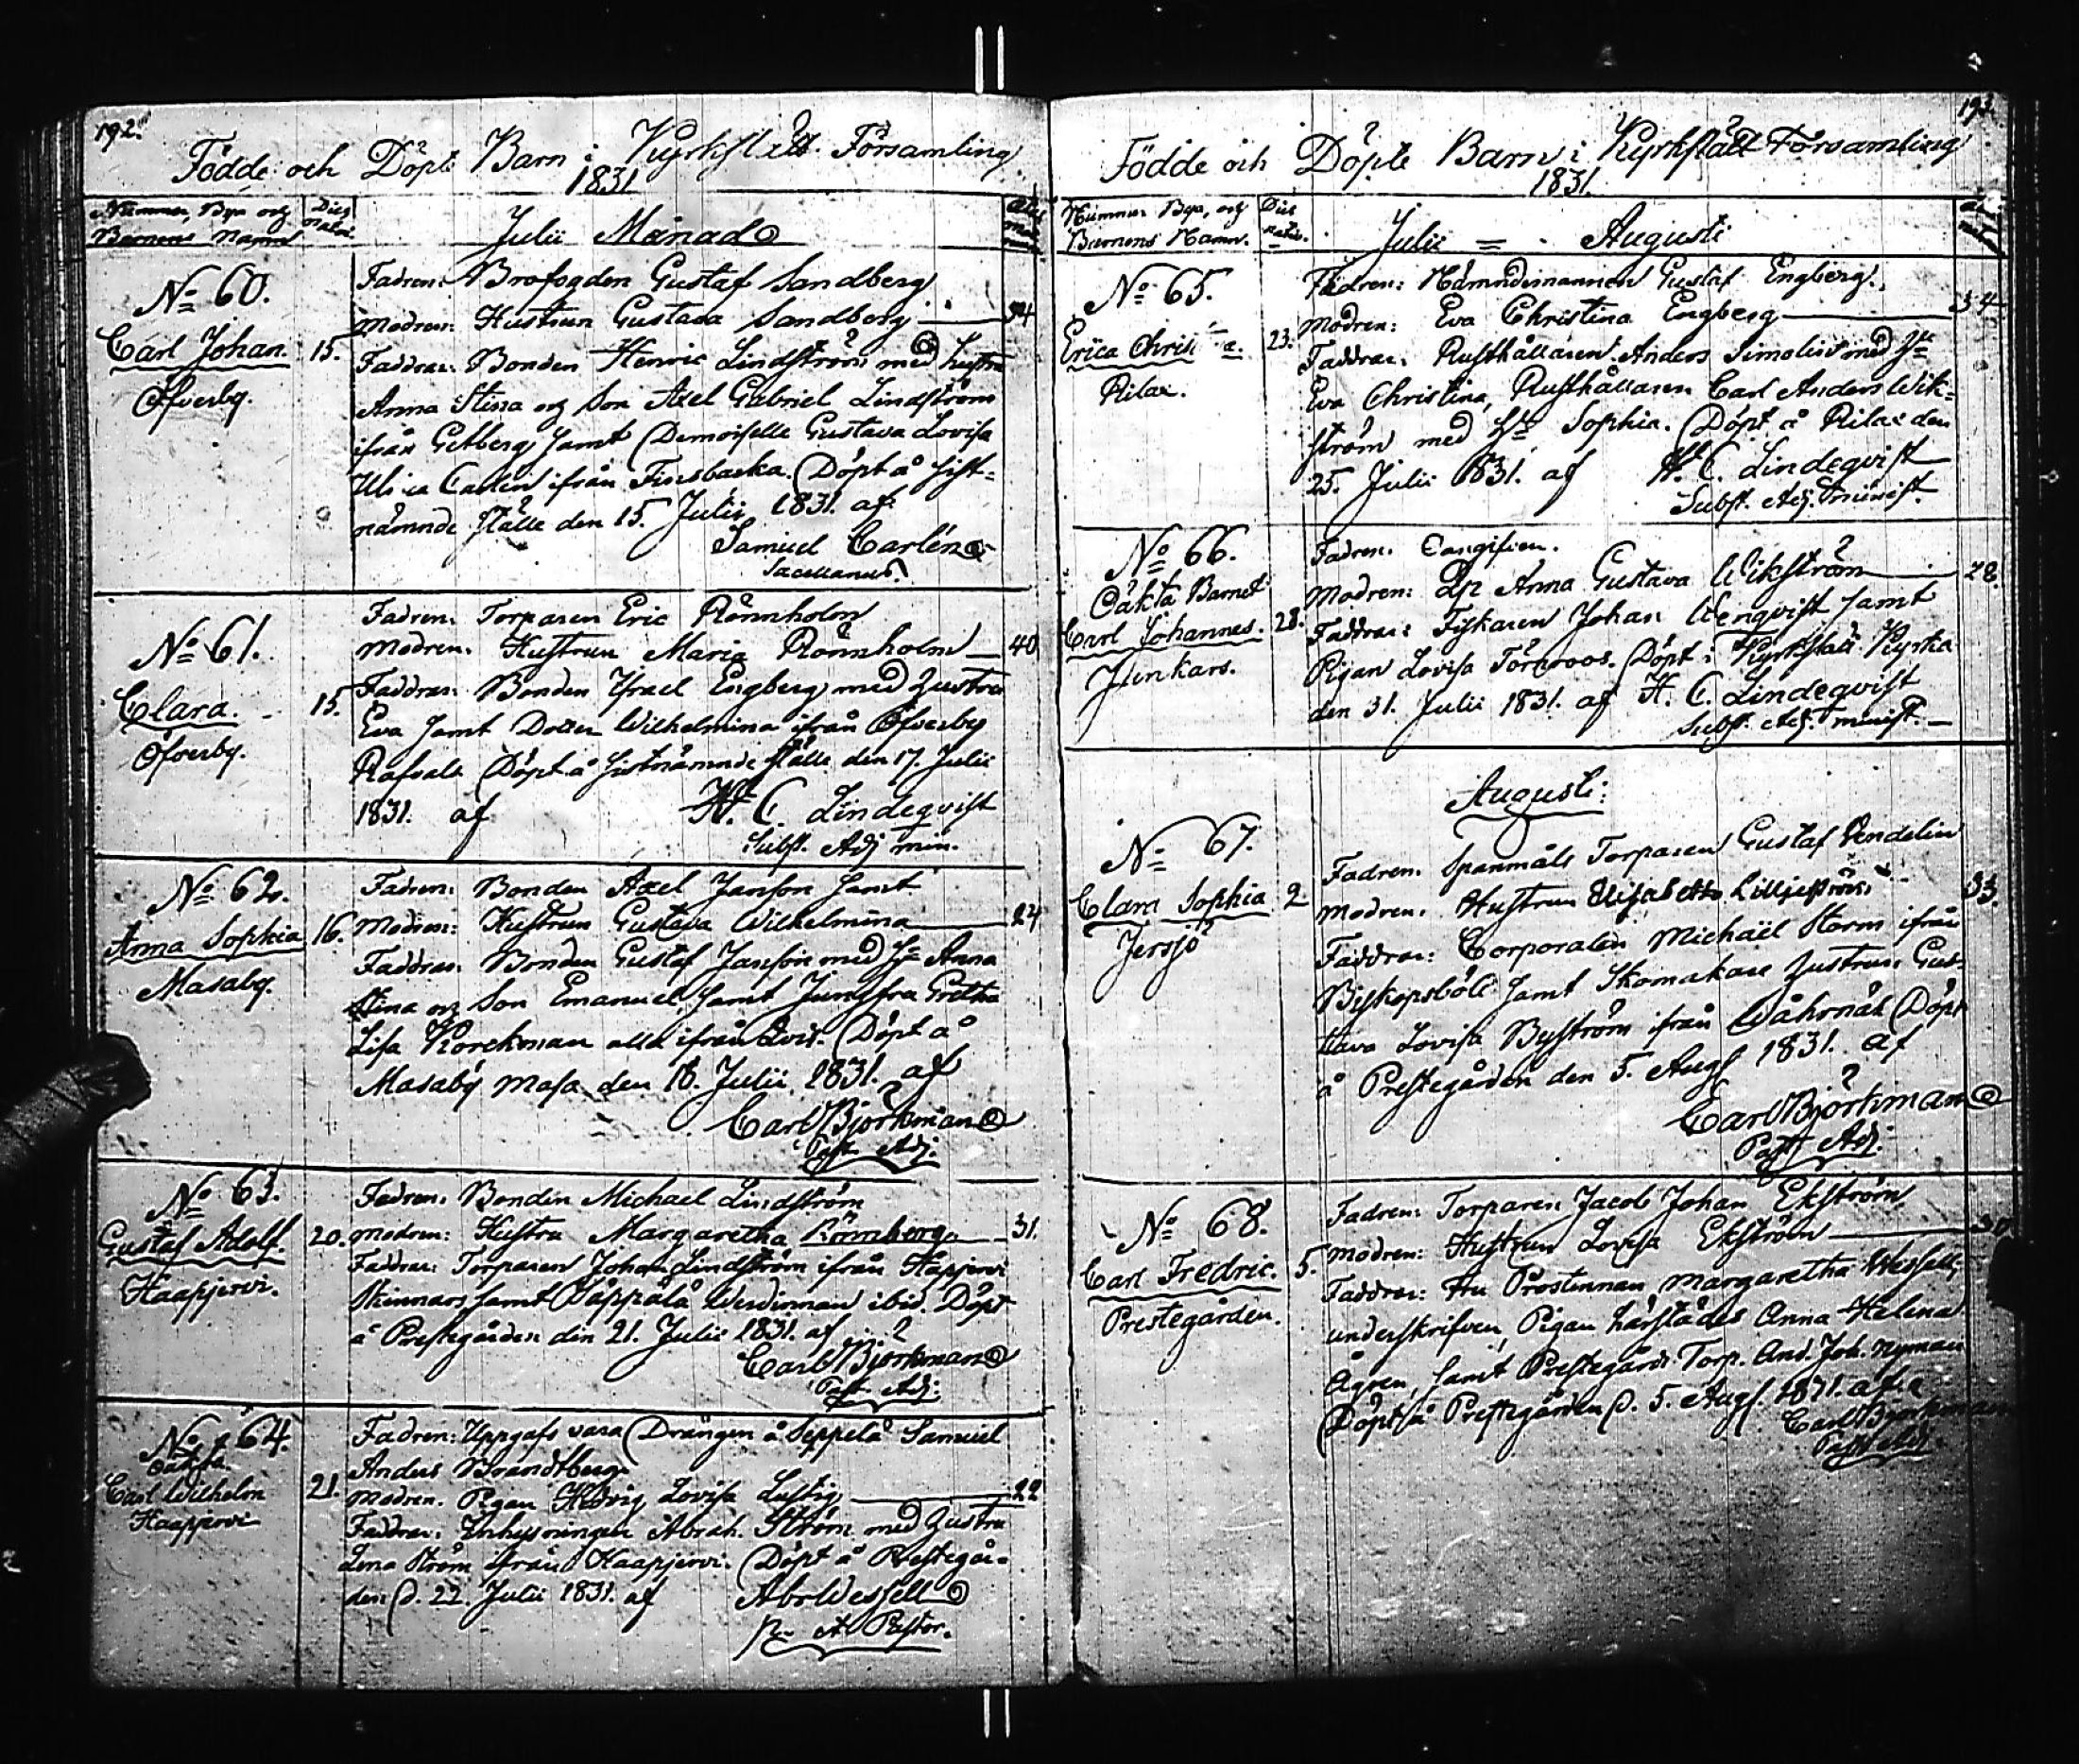 192.
Födde och Döpte Barn i Kyrkslätt Församling
1831
Nummer, Bya och Barnens Namn
Dies natal.
Julii Månad
No 60.
Carl Johan.
Öfverby.
15.
Fadren: Brofogden Gustaf Sandberg
Modren: Hustrun Gustava Sandberg 34
Faddrar: Bonden Henric Lindström med hustru
Anna Stina och Son Axel Gabriel Lindström
ifrån Getberg samt Demoiselle Gustava Lovisa
Carlén ifrån Finsbacka. Döpt å sist-
nämnde ställe den 15. Julii 1831. af
Samuel Carlén
Sacellanus.
No 61.
Clara.
Öfverby.
15.
Fadren: Torparen Eric Rönnholm
Modren: Hustrun Maria Rönnholm 40
Faddrar: Bonden Israel Engberg med Hustru
Eva samt Dotter Wilhelmina ifrån Öfverby
Döpt å sistnämnde ställe den 17. Julii
1831. af H. C. Lindeqvist
Subst. Adj. min.
No 62.
Anna Sophia
Masaby.
16.
Fadren: Bonden Axel Janson samt
Modren: Hustrun Gustava Wilhelmina 24
Faddrar: Bonden Gustaf Janson med Hu Anna
Stina och Son Emanuel, samt Jungfru Gretha
Lisa Korckman alla ifrån Döpt å
Masaby Masa den 18. Julii 1831. af
Carl Björkman
Past. Adj.
No 63.
Gustaf Adolf.
Haapjervi.
20.
Fadren: Bonden Michael Lindström
Modren: Hustru Margaretha Rönnberg 31.
Faddrar: Torparen Johan Lindström ifrån Hapjervi
Skinnars samt Päppälä Werdinnan ibid. Döpt
å Prestegården den 21. Julii 1831. af
Carl Björkman
Past. Adj.
No 64.
Oäkta
Carl Wilhelm
Haapjervi
21.
Fadren: Uppgafs vara Drängen å Seppelä Samuel
Anders Brandtberg
Modren: Pigan Hedvig Lovisa Lustig 22
Faddrar: Inhysningen Abrah. Ström med Hustru
Lena Ström ifrån Haapjervi. Döpt å Prestegår-
den d. 22. Julii 1831. af Abr Wessell
Pastor.
193.
Födde och Döpte Barn i Kyrkslätt Församling
1831.
Nummer Bya, och Barnens Namn.
Dies natal.
Julii = Augusti
No 65.
Erica Christina
Pilax.
23.
Fadren: Nämndemannen Gustaf Engberg.
Modren: Eva Christina Engberg 34
Faddrar: Rusthållaren Anders Simolin med Hu
Eva Christina, Rusthållaren Carl Anders Wik-
ström med Hu Sophia. Döpt å Pilax den
25. Julii 1831. af H. C. Lindeqvist
Subst. Adj. minist.
No 66.
Oäkta Barnet
Carl Johannes.
Junkars.
28.
Fadren: Oangifven.
Modren: Anna Gustava Wikström 28.
Faddrar: Fiskaren Johan Wenqvist samt
Pigan Lovisa Törnroos. Döpt i Kyrkslätt Kyrka
den 31. Julii 1831. af H. C. Lindeqvist
Subst. Adj. minist.
Augusti:
No 67.
Clara Sophia
Jersjö
2
Fadren: Spanmåls Torparen Gustaf Vendelin
Modren: Hustrun Elisabetha Lilljeström 33.
Faddrar: Corporalen Michaël Storm ifrån
Biskopsböle samt Skomakare Hustrun Gus-
tava Lovisa Byström ifrån Döpt
å Prestegården den 5. Aug. 1831. af
Carl Björkman
Past. Adj.
No 68.
Carl Fredric.
Prestegården.
5.
Fadren: Torparen Jacob Johan Ekström
Modren: Hustrun Lovisa Ekström 30
Faddrar: Fru Prostinnan Margaretha Wessell,
underskrifven, Pigan härstädes Anna Helena
Ågren, samt Prestegårds Torp. And. Joh. Nyman
Döpt å Prestegården d. 5. Aug. 1831. af
Carl Björkman
Past. Adj.